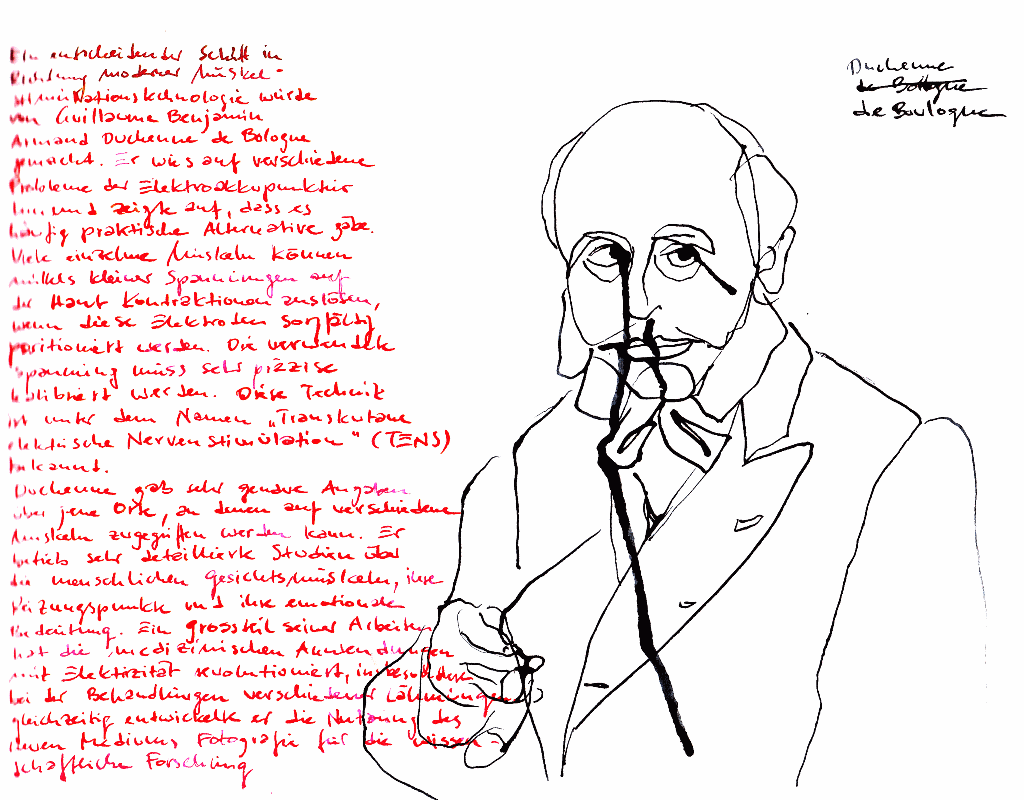 Ein entscheidender Schritt in
Richtung moderner Muskel-
stimulationstechnologie wurde
von Guillaume Benjamin
Armand Duchenne de Bologne
gemacht. Er wies auf verschiedene
Probleme der Elektroakkupunktur
hin und zeigte auf, dass es
häufig praktische Alternative gäbe.
Viele einzelne Muskeln können
mittels kleiner Spannungen auf
der Haut Kontraktionen auslösen,
wenn diese Elektroden sorgfältig
positioniert werden. Die verwendete
Spannung muss sehr präzise
kalibriert werden. Diese Technik
ist unter dem Namen „Transkutane
elektrische Nervenstimulation" (TENS)
bekannt.
Duchenne gab sehr genaue Angaben
über jene Orte, an denen auf verschiedene
Muskeln zugegriffen werden kann. Er
betrieb sehr detaillierte Studien über
die menschlichen Gesichtsmuskeln, ihre
Reizungspunkte und ihre emotionale
Bedeutung. Ein grossteil seiner Arbeiten
hat die medizinischen Anwendungen
mit Elektrizität revolutioniert, insbesondere
bei der Behandlungen verschiedener Lähmungen
gleichzeitig entwickelte er die Nutzung des
neuen Mediums Fotografie für die wissen-
schaftliche Forschung
Duchenne
de Bologne
de Boulogne